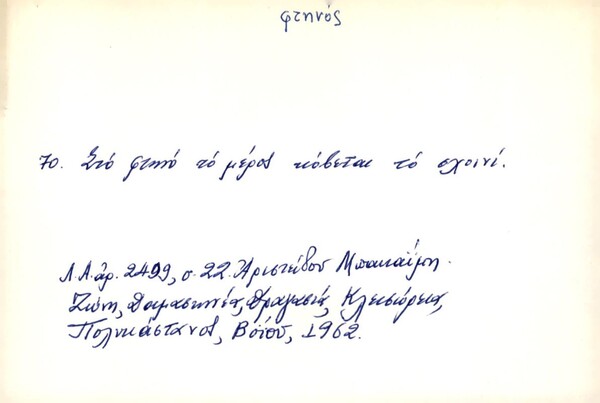 φτηνός
70. Στό φτηνό τό μέρος κόβεται τό σχοινί.
Λ.Α. ἀρ. 2499, σ. 22. Ἀριστείδου Μπακαΐμη.
Ζώνη, Δαμασκηνέα, Δραγασιά, Κλεισώρεια,
Πολυκάστανος, Βοΐου, 1962.